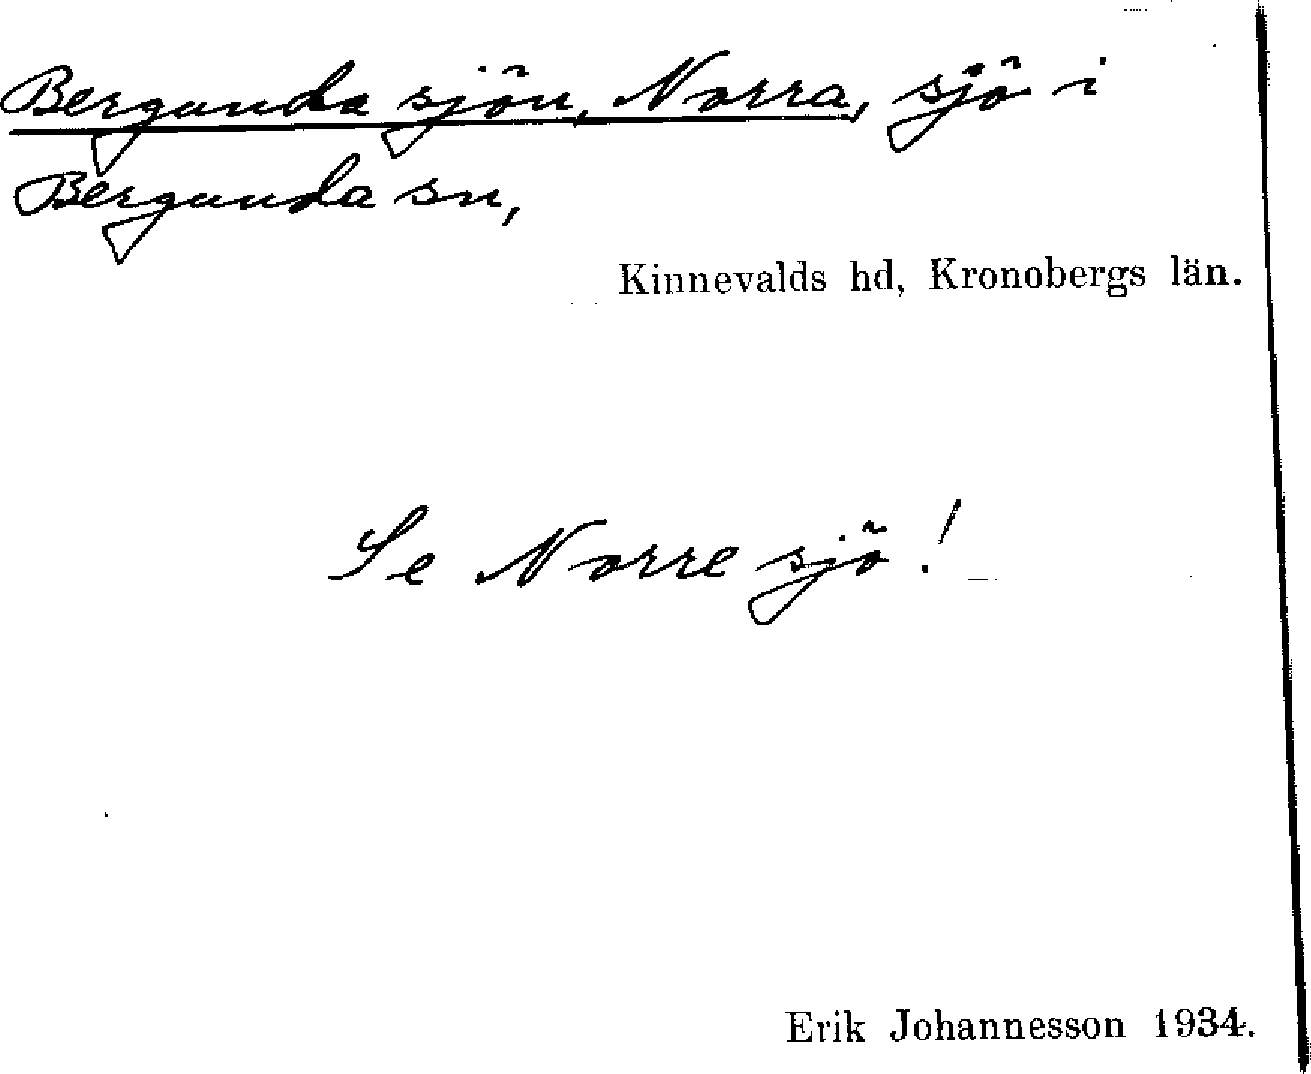 Bergunda sjön, Norra, sjö i
Bergunda sn,
Kinnevalds hd, Kronobergs län.
Se Norre sjö!
Erik Johannesson 1934.